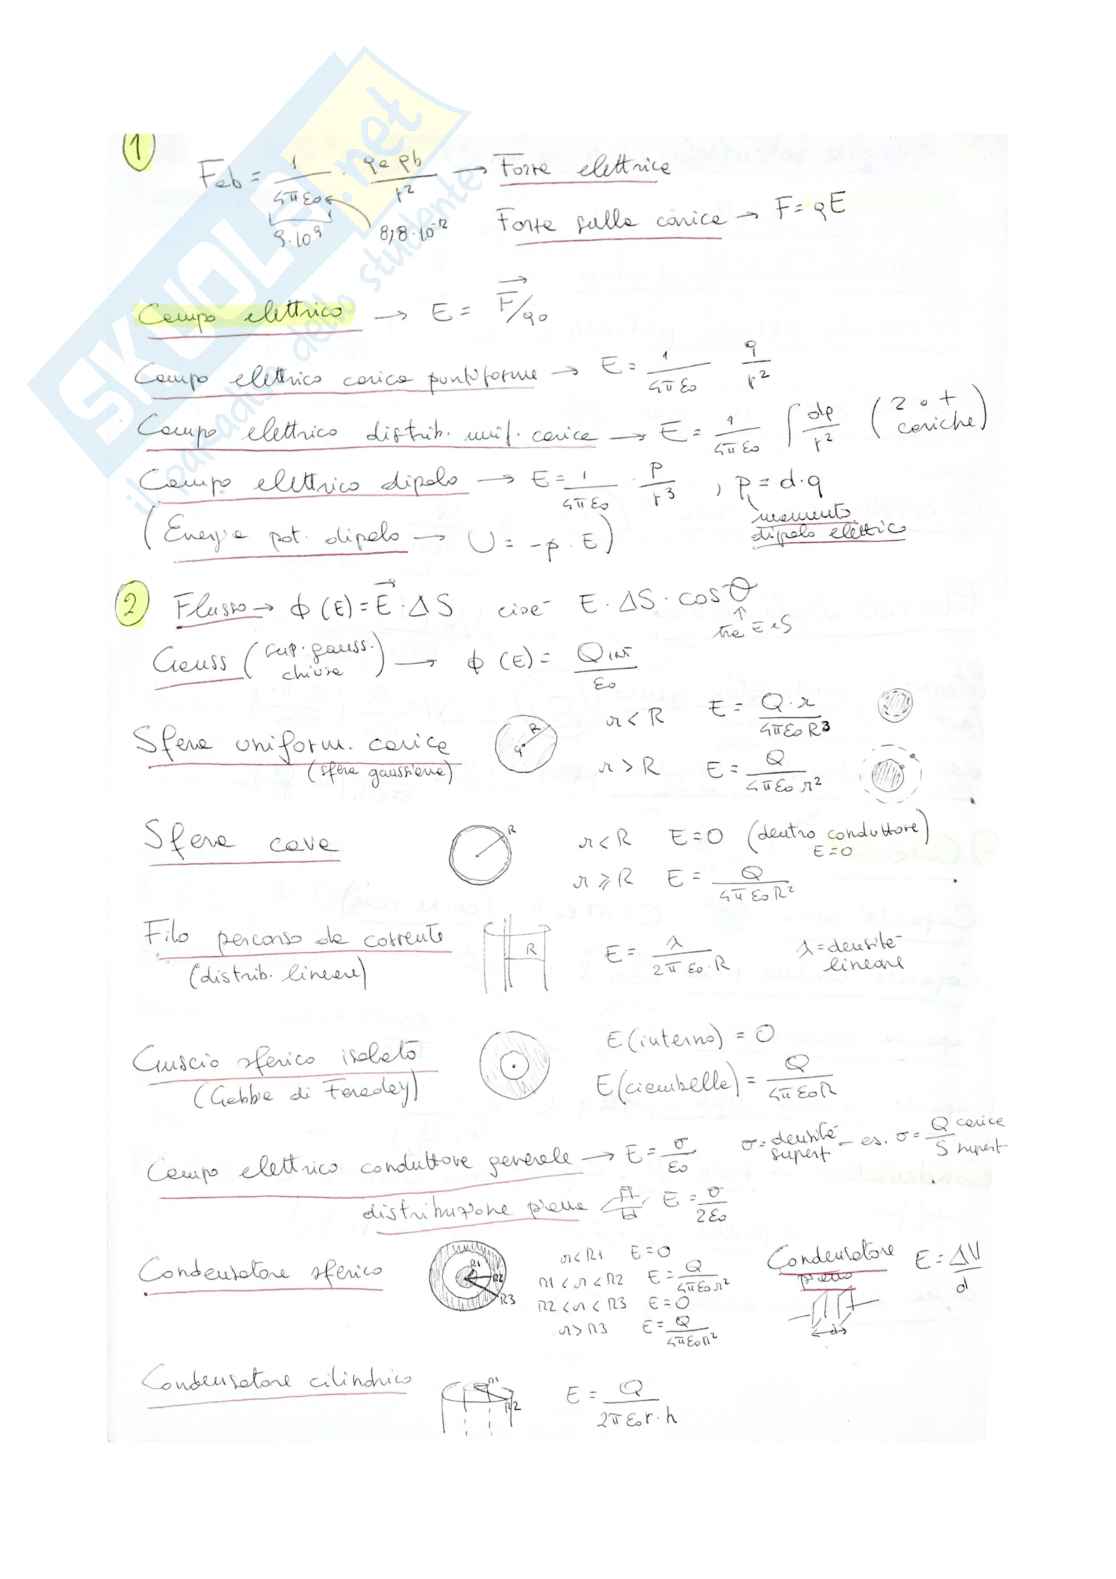 SKUOLA.net
il paradiso dello studente
1
Fab = 1/4πε0 · qa qb/r² → Forza elettrica
9·10⁹ 8,8·10⁻¹² Forza sulla carica → F = qE
Campo elettrico → E = F/q0
Campo elettrico carica puntiforme → E = 1/4πε0 q/r²
Campo elettrico distrib. unif. carica → E = 1/4πε0 ∫ dq/r² (2 o + cariche)
Campo elettrico dipolo → E = 1/4πε0 · p/r³ , p = d·q
momento
dipolo elettrico
(Energia pot. dipolo → U = -p · E)
2
Flusso → ϕ (E) = E · ΔS cioè E · ΔS · cos θ
tra E e S
Gauss (sup. gauss. chiusa) → ϕ (E) = QINT/ε0
Sfera uniform. carica
(sfera gaussiana)
R
q
r < R E = Q·r/4πε0R³
r > R E = Q/4πε0r²
Sfera cava
R
r < R E = 0 (dentro conduttore)
E=0
r ⩾ R E = Q/4πε0R²
Filo percorso da corrente
(distrib. lineare)
R
E = λ/2πε0·R
λ = densità
lineare
Guscio sferico isolato
(Gabbia di Faraday)
E (interno) = 0
E (ciambella) = Q/4πε0R
Campo elettrico conduttore generale → E = σ/ε0
σ = densità superf – es. σ = Q carica/S superf
distribuzione piana E = σ/2ε0
Condensatore sferico
R1
R2
R3
r < R1 E = 0
R1 < r < R2 E = Q/4πε0r²
R2 < r < R3 E = 0
r > R3 E = Q/4πε0R²
Condensatore
piano
d
E = ΔV/d
Condensatore cilindrico
R1
R2
E = Q/2πε0r·h